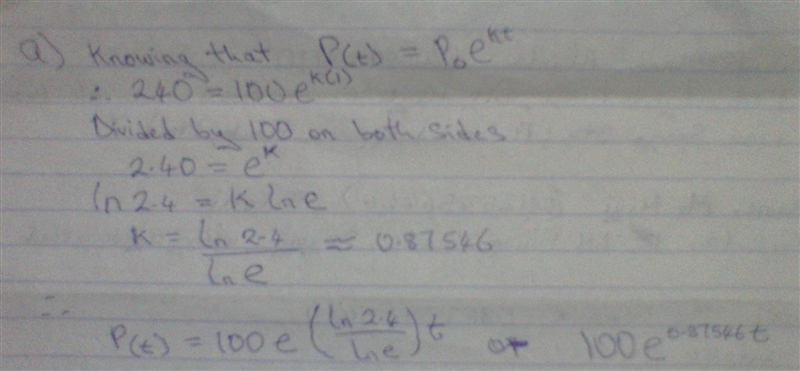 a) Knowing that P(t) = P₀e^kt
∴ 240 = 100e^k(1)
Divided by 100 on both sides
2.40 = e^k
ln 2.4 = k ln e
k = ln 2.4 / ln e ≈ 0.87546
∴
P(t) = 100e^(ln 2.4 / ln e)t or 100e^0.87546t